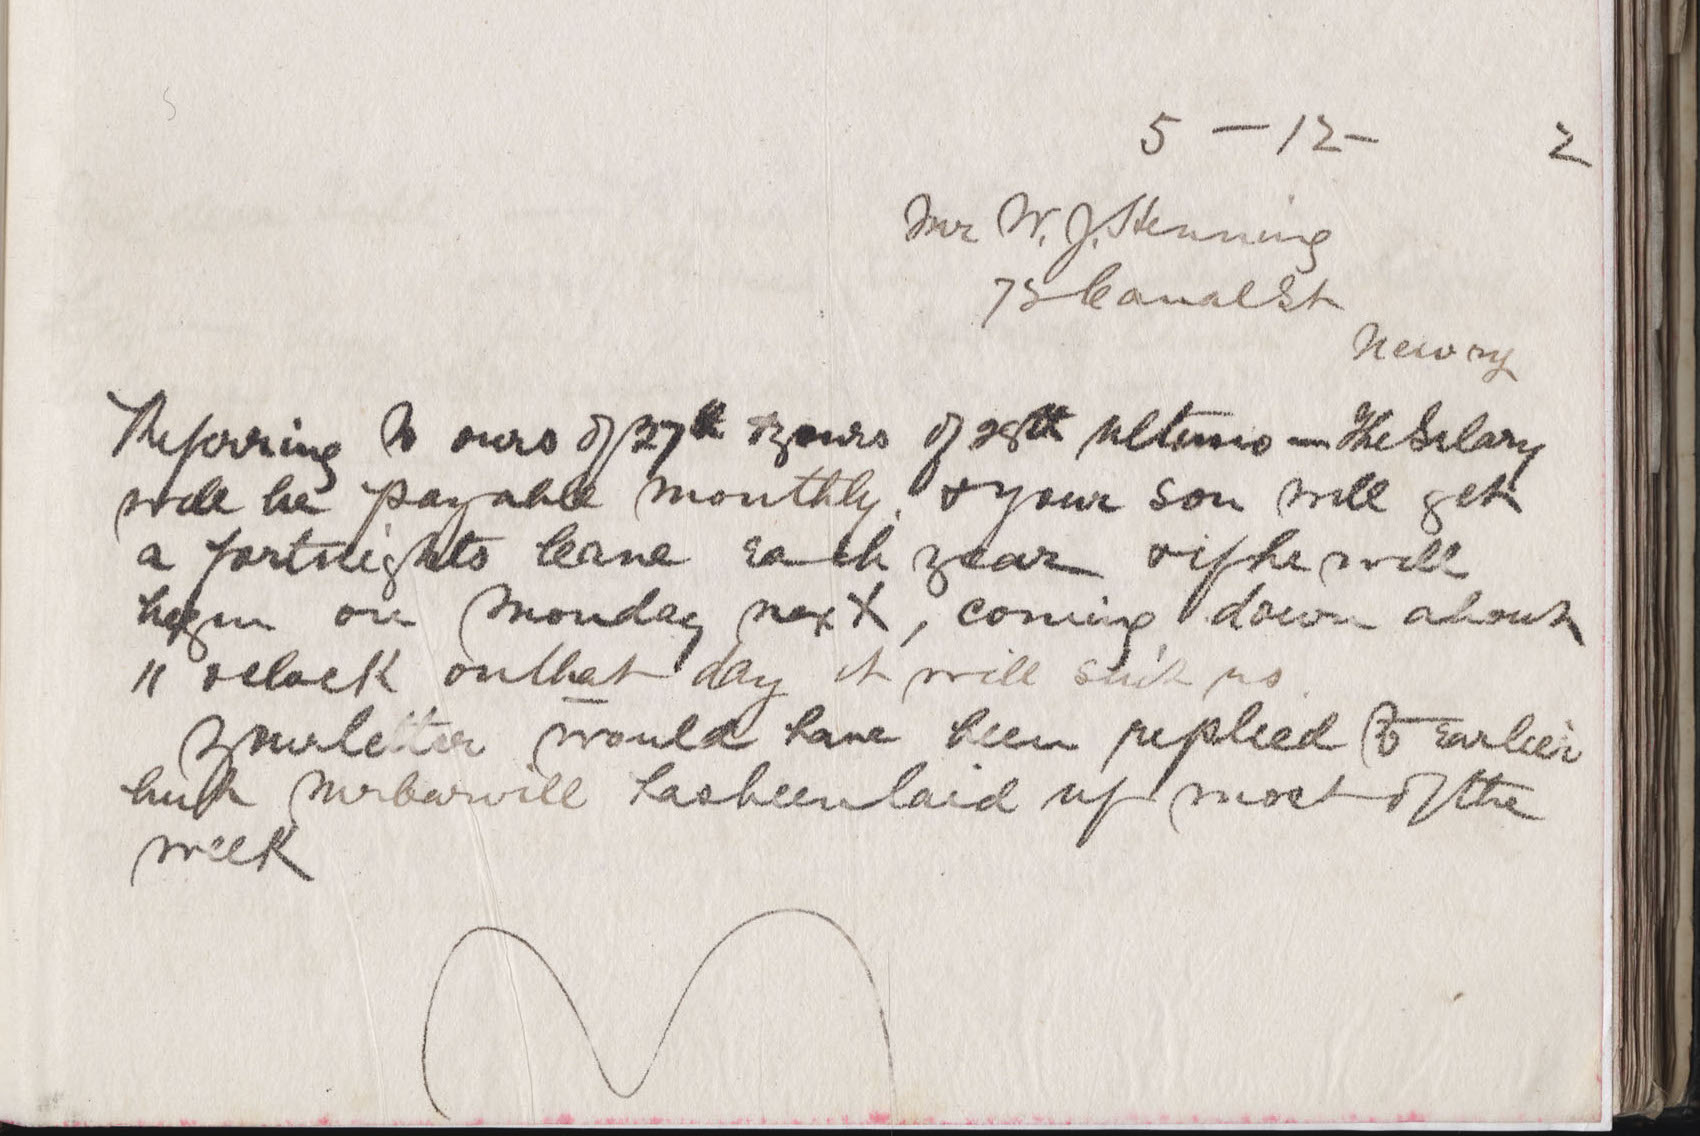 5 - 12 - 2
Mr W. J. Henning
73 Canal St
Newry
Referring to ours of 27th & yours of 28th ultimo — The Salary
will be payable monthly. & your son will get
a fortnights leave each year & if he will
begin on Monday next, coming down about
11 oclock on that day it will suit us.
Your letter would have been replied to earlier
but Mr Carvill has been laid up most of the
week